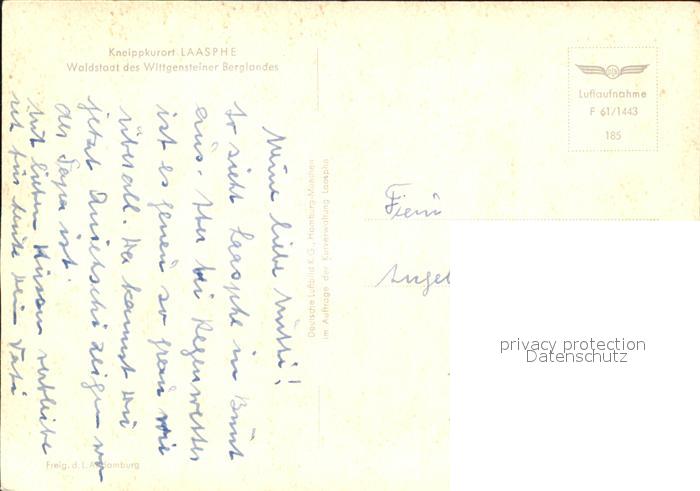 Kneippkurort LAASPHE
Waldstadt des Wittgensteiner Berglandes
Luftaufnahme
F 61/1443
185
Meine liebe Mutti!
So sieht Laasphe in Bunt
aus. Aber bei Regenwetter
ist es genau so grau wie
überall. Da kannst du
jetzt zeigen wo
der Papa ist.
Mit lieben Küssen verbleibe
ich für heute dein Vati
Deutsche Luftbild K.G., Hamburg-München
im Auftrage der Kurverwaltung Laasphe
Freig. d. L.A. Hamburg
privacy protection
Datenschutz